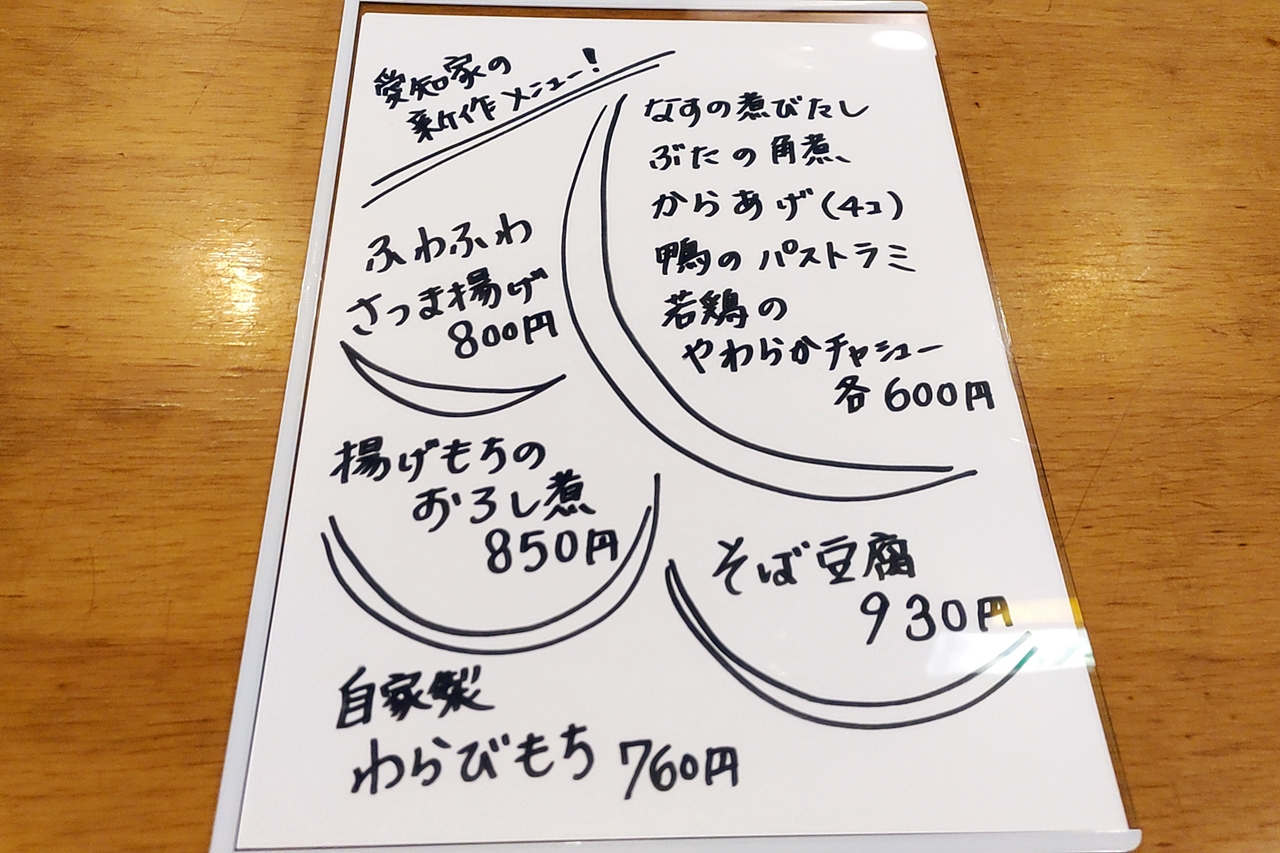 愛知家の
新作メニュー!
ふわふわ
さつま揚げ
800円
揚げもちの
おろし煮
850円
自家製
わらびもち 760円
なすの煮びたし
ぶたの角煮
からあげ(4コ)
鴨のパストラミ
若鶏の
やわらかチャシュー
各600円
そば豆腐
930円